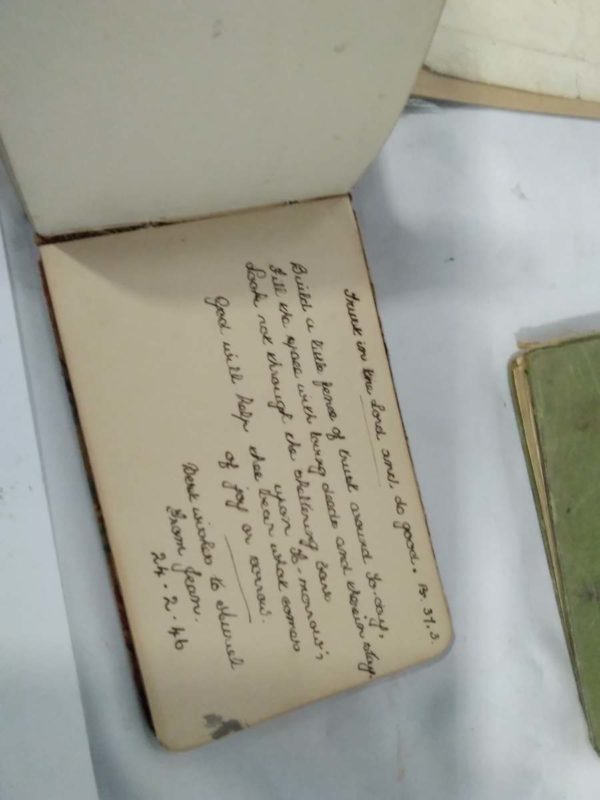 Trust in the Lord and do good. Ps. 37.3.
Build a little fence of trust around to-day,
Fill the space with loving deeds and therein stay
Look not through the sheltering bars
upon to-morrow;
God will help thee bear what comes
of joy or sorrow.
Best wishes to Muriel
From Jean.
24.2.46